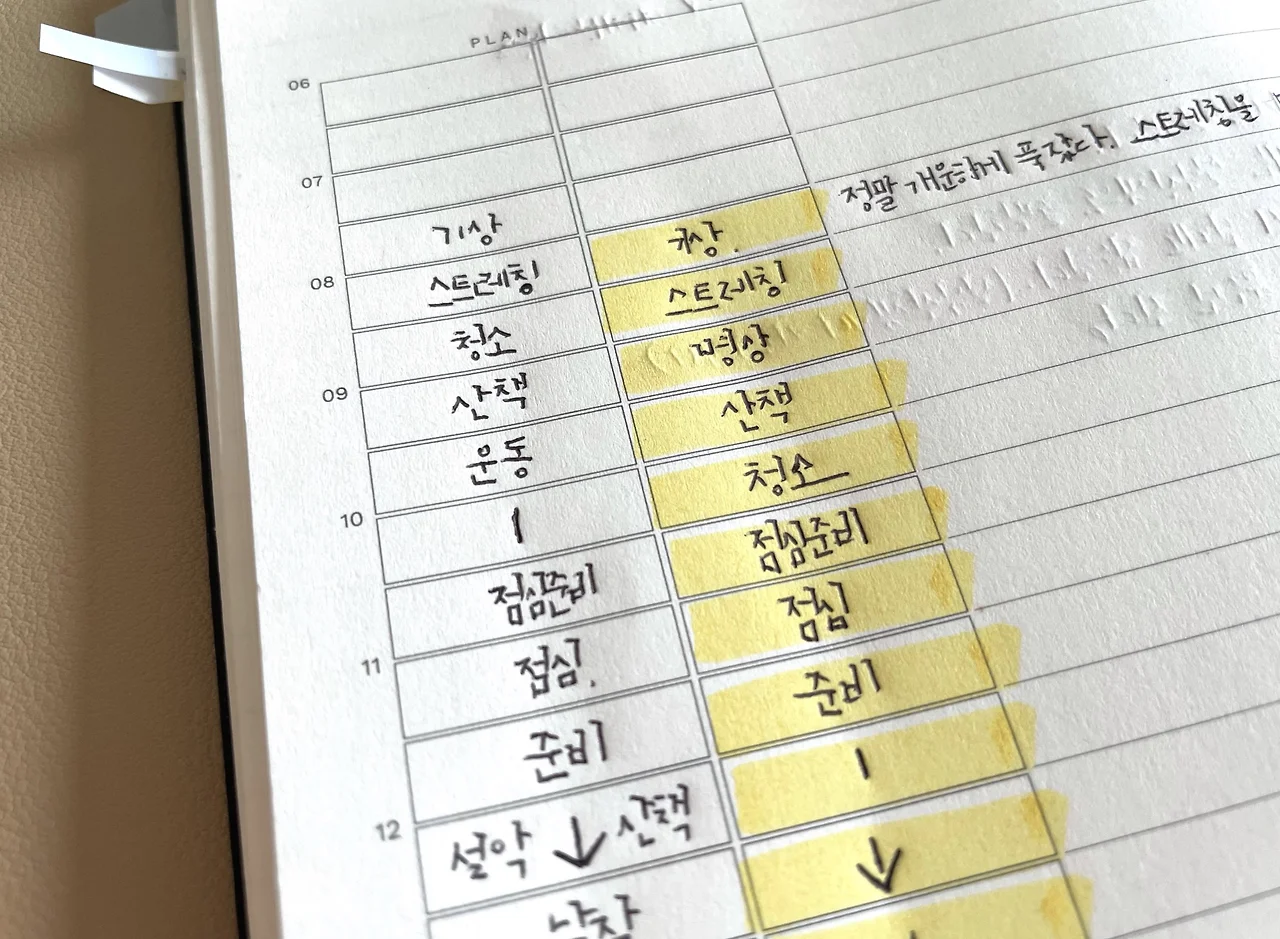 PLAN
06
07
정말 개운하게 푹잤다. 스트레칭을
기상 기상.
08
스트레칭 스트레칭
청소 명상
09
산책 산책
운동 청소
10
점심준비
점심준비 점심
11
점심. 준비
준비
12
↓ 산책 ↓
낮잠